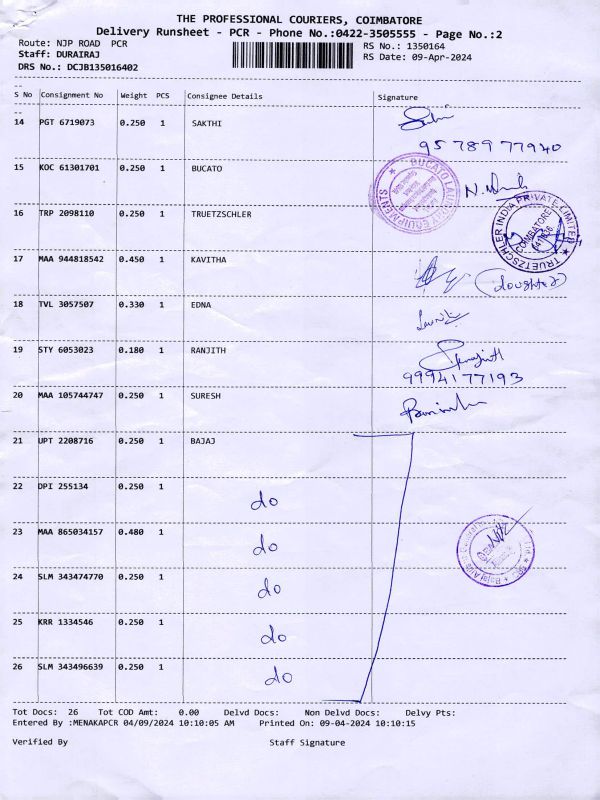 THE PROFESSIONAL COURIERS, COIMBATORE
Delivery Runsheet - PCR - Phone No.:0422-3505555 - Page No.:2
Route: NJP ROAD PCR RS No.: 1350164
Staff: DURAIRAJ RS Date: 09-Apr-2024
DRS No.: DCJB135016402
S No Consignment No Weight PCS Consignee Details Signature
14 PGT 6719073 0.250 1 SAKTHI
95789 77940
15 KOC 61301701 0.250 1 BUCATO
BUCATO LAUNDRY EQUIPMENTS
16 TRP 2098110 0.250 1 TRUETZSCHLER
TRUETZSCHLER INDIA PRIVATE LIMITED
COIMBATORE
17 MAA 944818542 0.450 1 KAVITHA
(doughter)
18 TVL 3057507 0.330 1 EDNA
19 STY 6053023 0.180 1 RANJITH
9994177193
20 MAA 105744747 0.250 1 SURESH
21 UPT 2208716 0.250 1 BAJAJ
22 DPI 255134 0.250 1 do
23 MAA 865034157 0.480 1 do
24 SLM 343474770 0.250 1 do
25 KRR 1334546 0.250 1 do
26 SLM 343496639 0.250 1 do
Tot Docs: 26 Tot COD Amt: 0.00 Delvd Docs: Non Delvd Docs: Delvy Pts:
Entered By :MENAKAPCR 04/09/2024 10:10:05 AM Printed On: 09-04-2024 10:10:15
Verified By Staff Signature